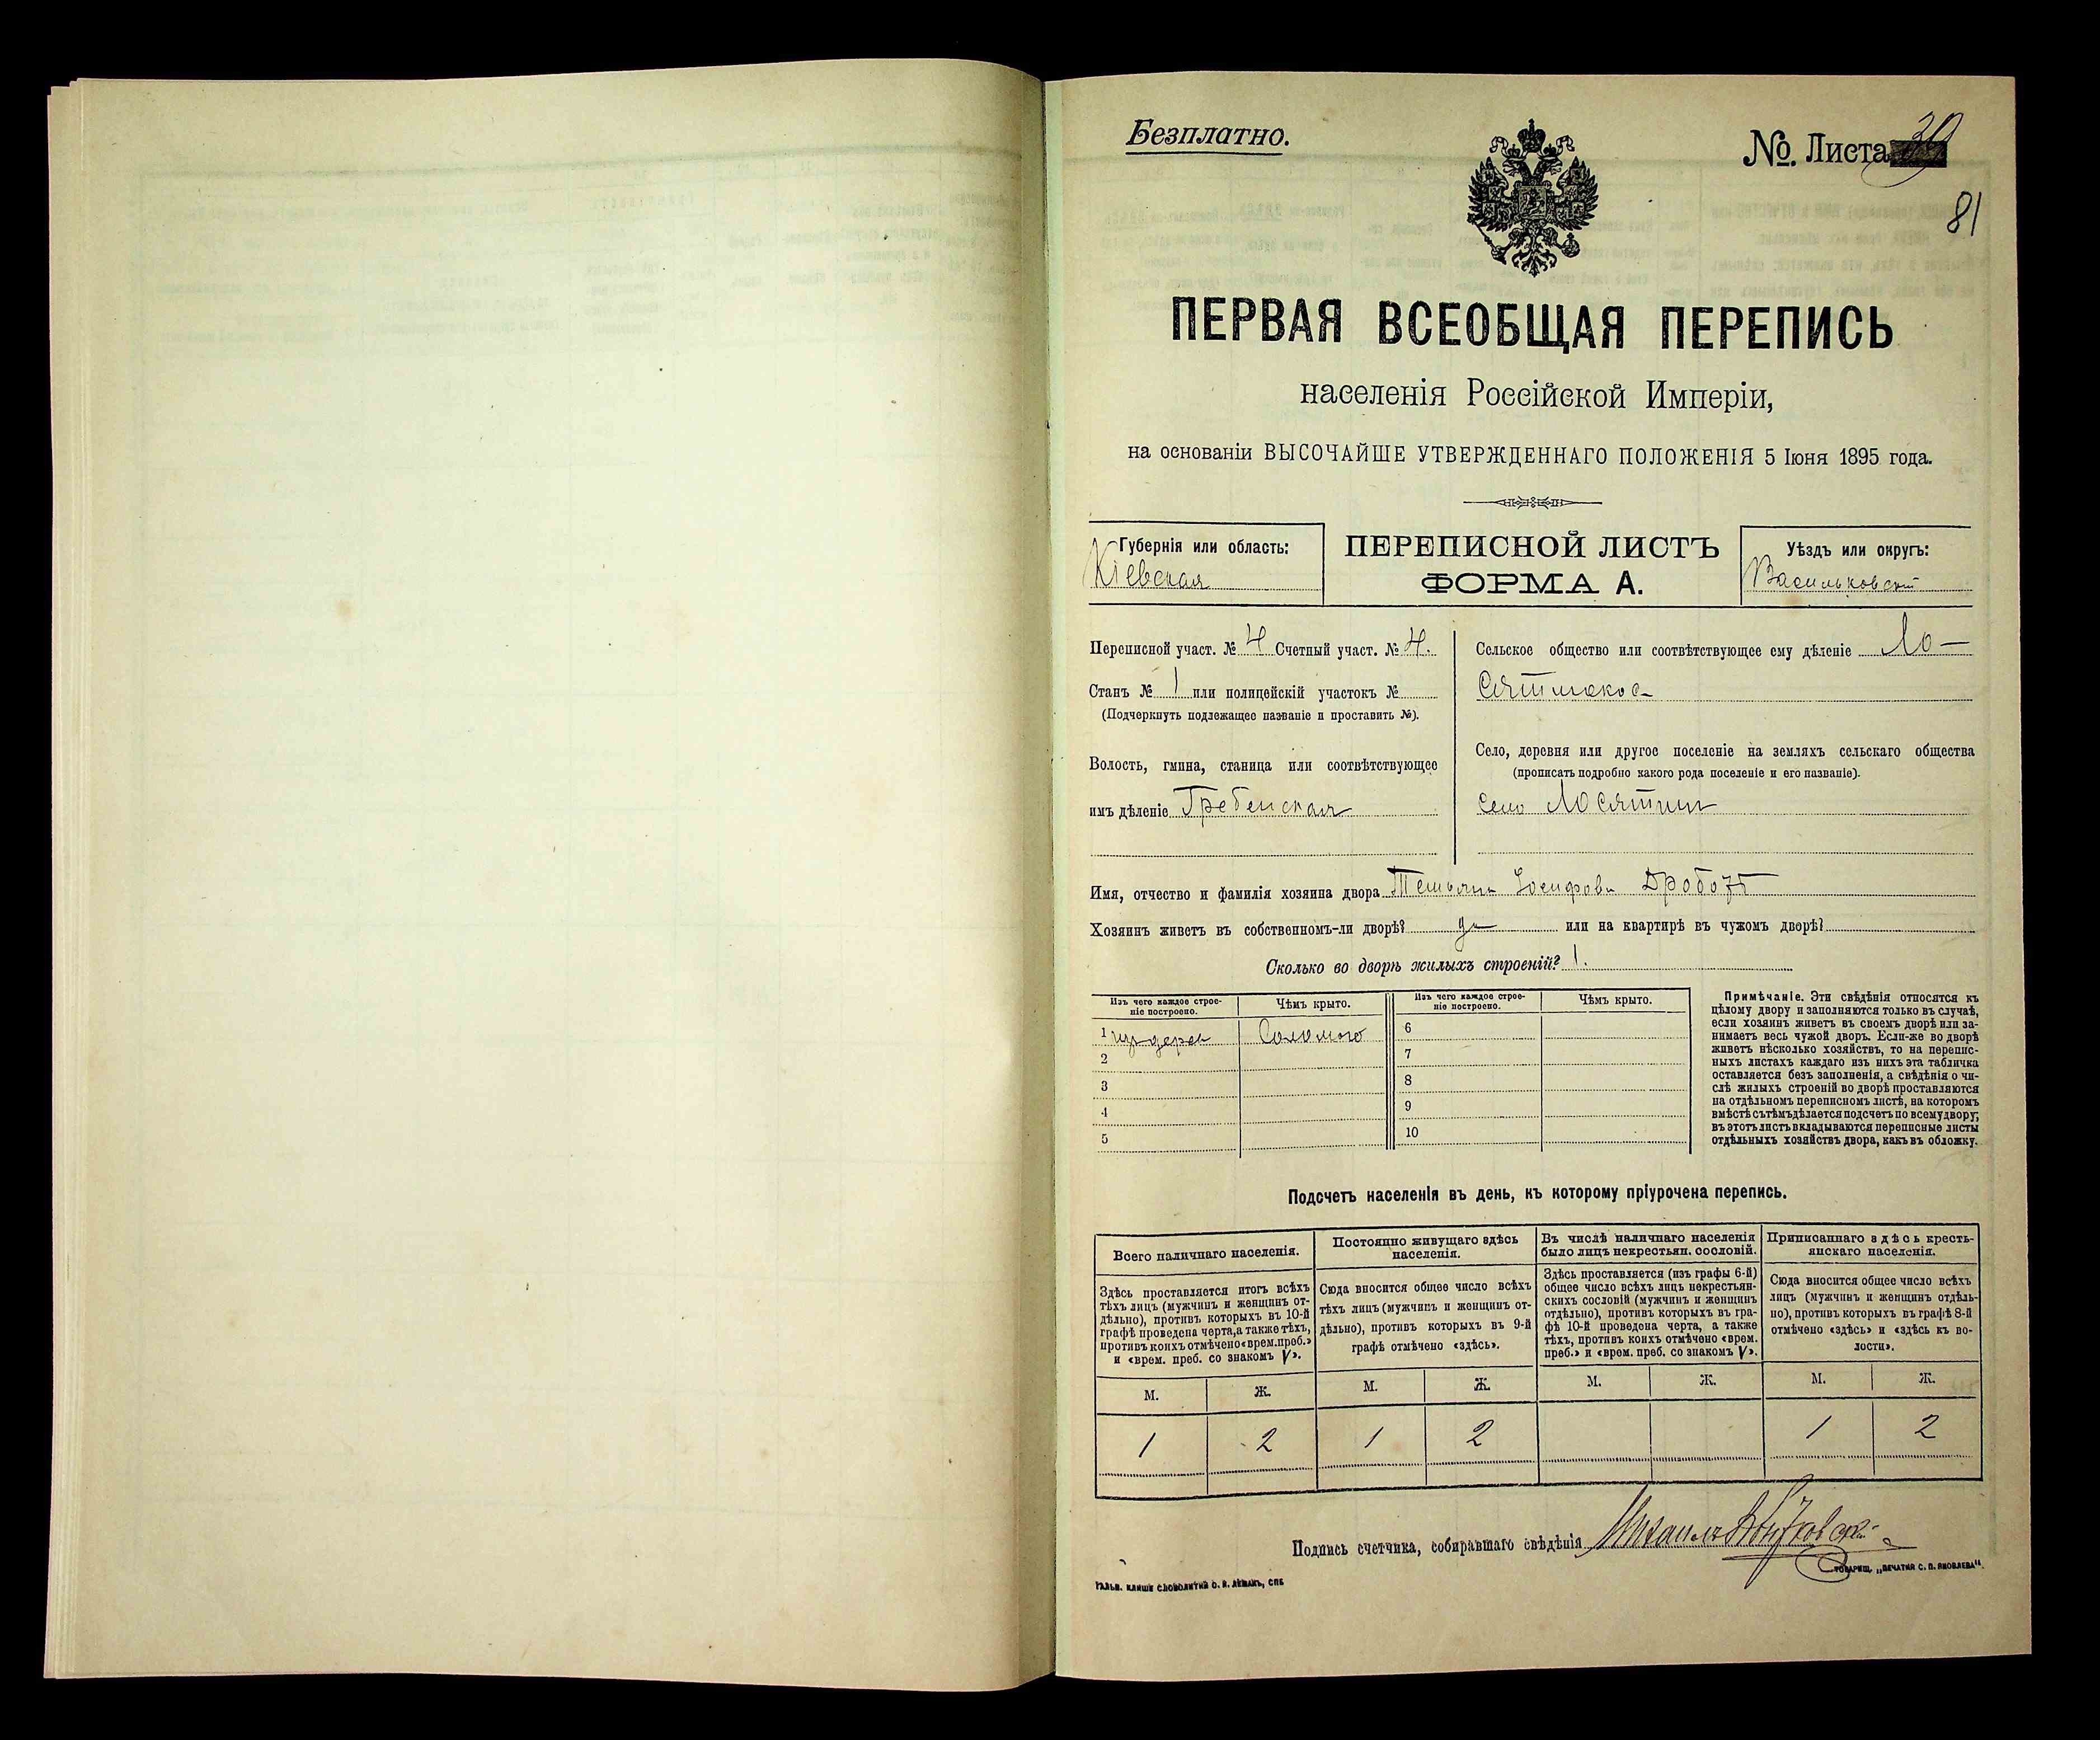 Безплатно.
№. Листа 39
81
ПЕРВАЯ ВСЕОБЩАЯ ПЕРЕПИСЬ
населенія Россійской Имперіи,
на основаніи ВЫСОЧАЙШЕ УТВЕРЖДЕННАГО ПОЛОЖЕНІЯ 5 Іюня 1895 года.
Губернія или область:
Кіевская
ПЕРЕПИСНОЙ ЛИСТЪ
ФОРМА А.
Уѣздъ или округъ:
Васильковскій
Переписной участ. № 4 Счетный участ. № 4.
Станъ № 1 или полицейскій участокъ №
(Подчеркнуть подлежащее названіе и проставить №).
Волость, гмина, станица или соотвѣтствующее
имъ дѣленіе Гребенская
Сельское общество или соотвѣтствующее ему дѣленіе Ло-
сятинское
Село, деревня или другое поселеніе на земляхъ сельскаго общества
(прописать подробно какого рода поселеніе и его названіе).
село Лосятин
Имя, отчество и фамилія хозяина двора Іосифова Дробозъ
Хозяинъ живетъ въ собственномъ-ли дворѣ? да или на квартирѣ въ чужомъ дворѣ?
Сколько во дворѣ жилыхъ строеній? 1.
Изъ чего каждое строе-
ніе построено.
Чѣмъ крыто.
Изъ чего каждое строе-
ніе построено.
Чѣмъ крыто.
1 изъ дерев Соломою
2
3
4
5
6
7
8
9
10
Примѣчаніе. Эти свѣдѣнія относятся къ
цѣлому двору и заполняются только въ случаѣ,
если хозяинъ живетъ въ своемъ дворѣ или за-
нимаетъ весь чужой дворъ. Если-же во дворѣ
живетъ нѣсколько хозяйствъ, то на перепис-
ныхъ листахъ каждаго изъ нихъ эта табличка
оставляется безъ заполненія, а свѣдѣнія о чи-
слѣ жилыхъ строеній во дворѣ проставляются
на отдѣльномъ переписномъ листѣ, на которомъ
вмѣстѣ съ тѣмъ дѣлается подсчетъ по всему двору;
въ этотъ листъ вкладываются переписные листы
отдѣльныхъ хозяйствъ двора, какъ въ обложку.
Подсчетъ населенія въ день, къ которому пріурочена перепись.
Всего наличнаго населенія.
Постоянно живущаго здѣсь
населенія.
Въ числѣ наличнаго населенія
было лицъ некрестьян. сословій.
Приписаннаго здѣсь кресть-
янскаго населенія.
Здѣсь проставляется итогъ всѣхъ
тѣхъ лицъ (мужчинъ и женщинъ от-
дѣльно), противъ которыхъ въ 10-й
графѣ проведена черта, а также тѣхъ,
противъ коихъ отмѣчено «врем. преб.»
и «врем. преб. со знакомъ V».
Сюда вносится общее число всѣхъ
тѣхъ лицъ (мужчинъ и женщинъ от-
дѣльно), противъ которыхъ въ 9-й
графѣ отмѣчено «здѣсь».
Здѣсь проставляется (изъ графы 6-й)
общее число всѣхъ лицъ некрестьян-
скихъ сословій (мужчинъ и женщинъ
отдѣльно), противъ которыхъ въ гра-
фѣ 10-й проведена черта, а также
тѣхъ, противъ коихъ отмѣчено «врем.
преб.» и «врем. преб. со знакомъ V».
Сюда вносится общее число всѣхъ
лицъ (мужчинъ и женщинъ отдѣль-
но), противъ которыхъ въ графѣ 8-й
отмѣчено «здѣсь» и «здѣсь къ во-
лости».
М. Ж. М. Ж. М. Ж. М. Ж.
1 2 1 2 1 2
Подпись счетчика, собиравшаго свѣдѣнія Михаилъ
ГАЛЬВ. КЛИШЕ СЛОВОЛИТНИ О. И. ЛЕМАНЪ, СПБ
ТОВАРИЩ. „ПЕЧАТНЯ С. П. ЯКОВЛЕВА".